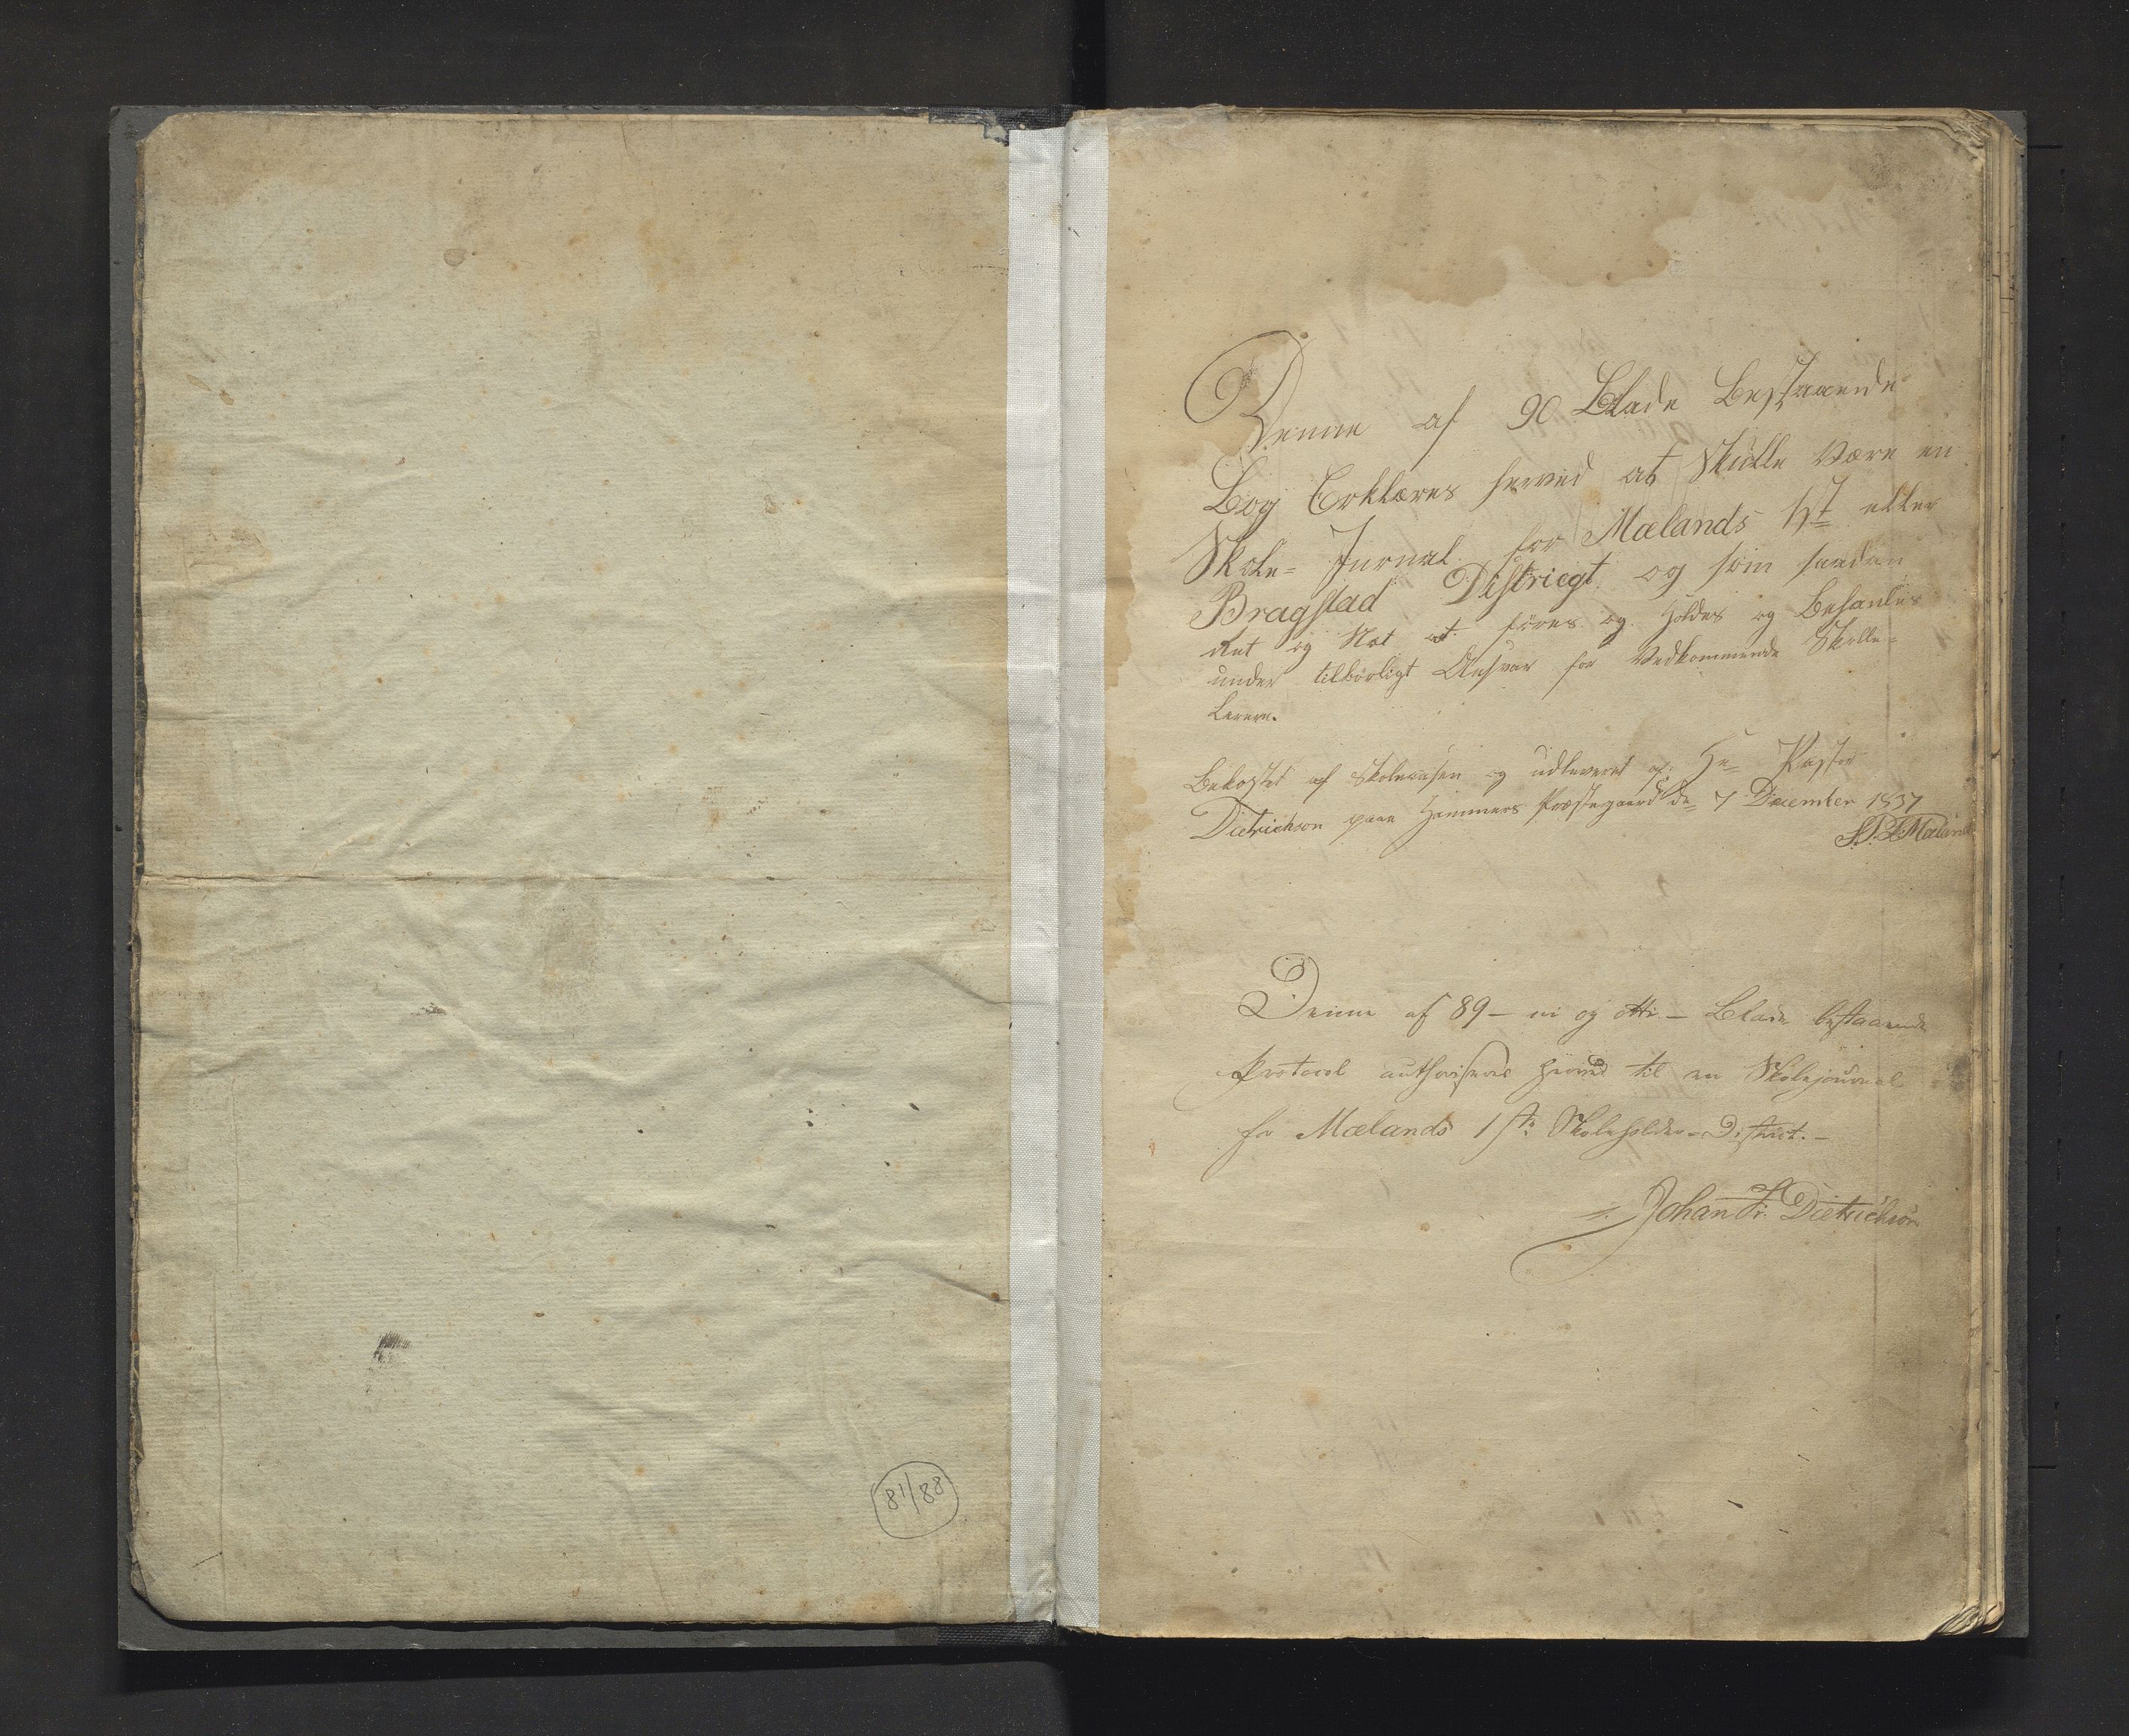 81/88
Denne af 90 Blade Bestaaende
Bog Erklæres herved at Skulle Være en
Skole= Jurnal for Mælands 1st eller
Bragstad Distriegt og som saadan
Ret og Net at föres og Holdes og Behanles
under tilbörligt Ansvar for Vedkommende Skolle=
Lerere.
Bekostet af Skolecasen og udleveret af Hr Pastor
Dietrichson paa Hammers Præstegaard de 7 December 1837
Mæland
Denne af 89 – ni og otti – Blade bestaaende
Protocol authoriseres herved til en Skolejournal
for Mælands 1ste Skoleholder-District. –
Johan Fr. Dietrichson